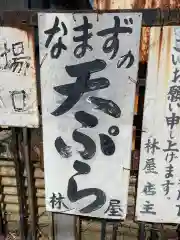 お願い
申し上げます。
林屋店主
なまずの
天ぷら
林屋
場
口